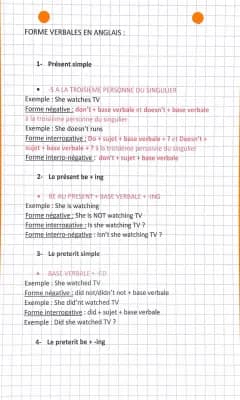 FORME VERBALES EN ANGLAIS :
1- Présent simple
• -S A LA TROISIEME PERSONNE DU SINGULIER
Exemple : She watches TV
Forme négative : don't + base verbale et doesn't + base verbale
à la troisième personne du singulier
Exemple : She doesn't runs
Forme interrogative : Do + sujet + base verbale + ? et Doesn't +
sujet + base verbale + ? à la troisième personne du singulier
Forme interro-négative : don't + sujet + base verbale
2- Le présent be + ing
• BE AU PRESENT + BASE VERBALE + -ING
Exemple : She is watching
Forme négative : She is NOT watching TV
Forme interrogative : Is she watching TV ?
Forme interro-négative : Isn't she watching TV ?
3- Le preterit simple
• BASE VERBALE + -ED
Exemple : She watched TV
Forme négative : did not/didn't not + base verbale
Exemple : She did'nt watched TV
Forme interrogative : did + sujet + base verbale
Exemple : Did she watched TV ?
4- Le preterit be + -ing